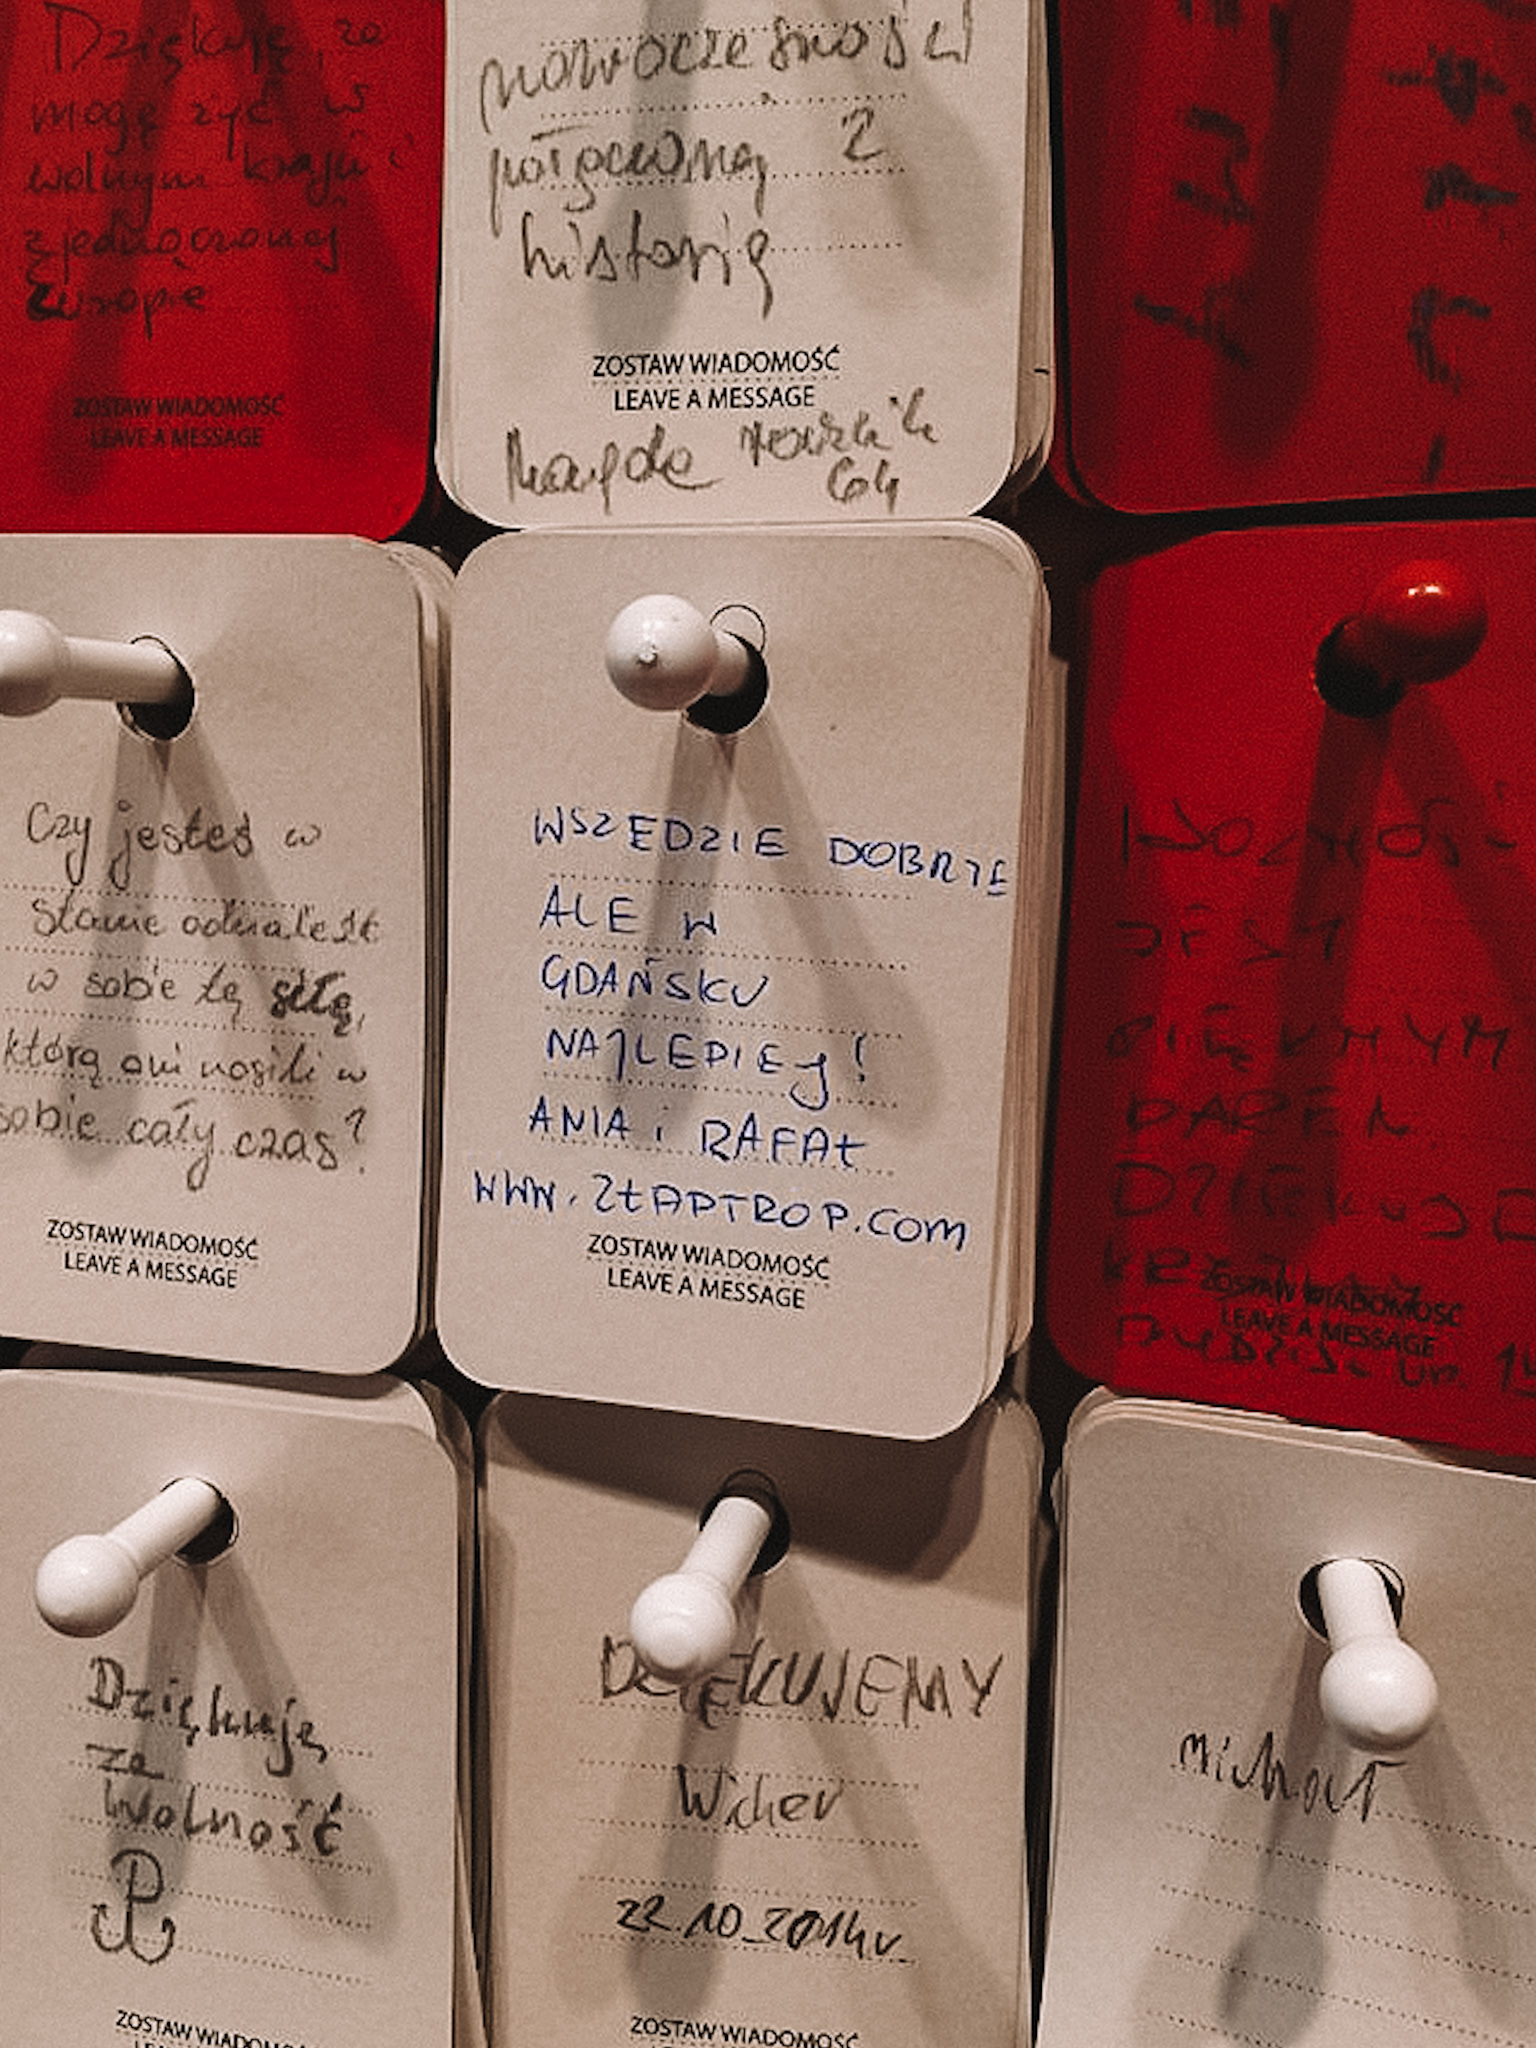 Dziękuję, że
mogę żyć w
wolnym kraju i
zjednoczonej
Europie
ZOSTAW WIADOMOŚĆ
LEAVE A MESSAGE
nowoczesności
połączonej z
historią
ZOSTAW WIADOMOŚĆ
LEAVE A MESSAGE
Magda
Czy jesteś w
stanie odnaleźć
w sobie tę siłę,
którą oni nosili w
sobie cały czas?
ZOSTAW WIADOMOŚĆ
LEAVE A MESSAGE
WSZĘDZIE DOBRZE
ALE W
GDAŃSKU
NAJLEPIEJ!
ANIA i RAFAŁ
WWW.ZŁAPTROP.COM
ZOSTAW WIADOMOŚĆ
LEAVE A MESSAGE
WOLNOŚĆ
JEST
PIĘKNYM
DAREM.
DZIĘKUJĘ
ZOSTAW WIADOMOŚĆ
LEAVE A MESSAGE
Dziękuję
za
wolność
ZOSTAW WIADOMOŚĆ
DZIĘKUJEMY
Wicher
22.10.2014r
ZOSTAW WIADOMOŚĆ
Michał